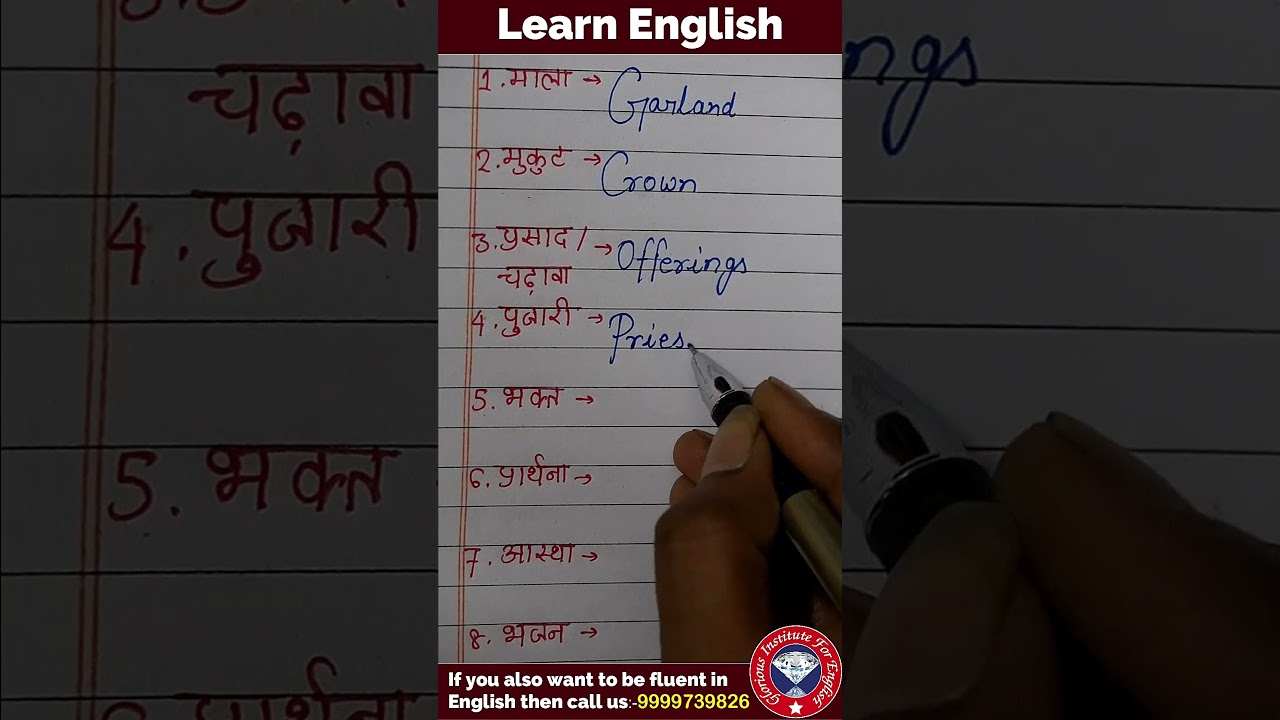 Learn English
1. माला → Garland
2. मुकुट → Crown
3. प्रसाद / → Offerings
चढ़ावा
4. पुजारी → Pries
5. भक्त →
6. प्रार्थना →
7. आस्था →
8. भजन →
If you also want to be fluent in
English then call us:-9999739826
Glorious Institute For English
चढ़ावा
4. पुजारी
5. भक्त
ngs